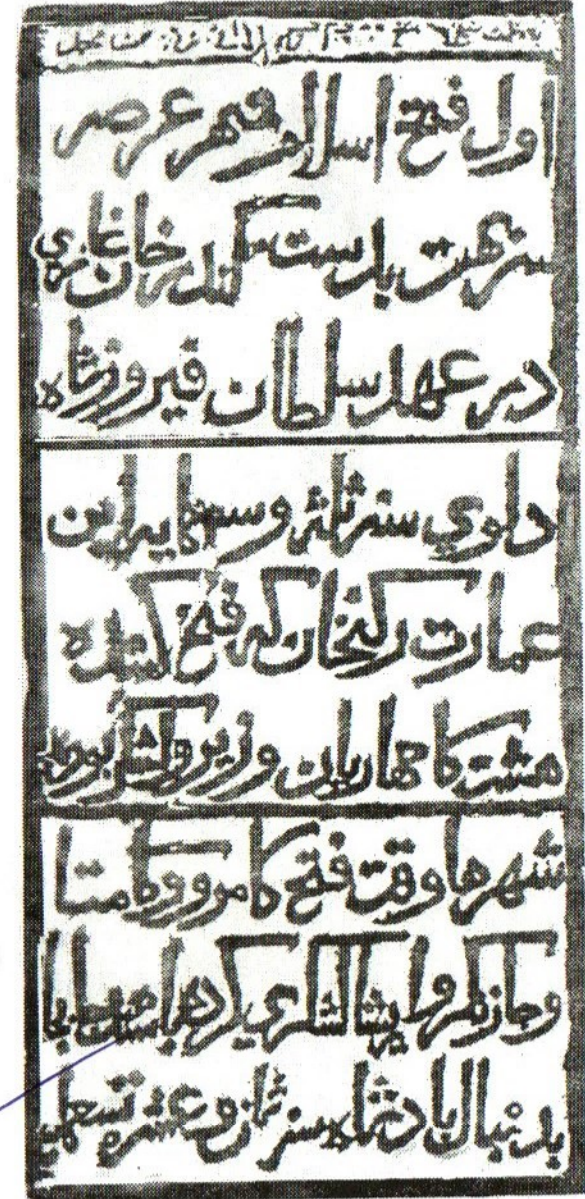 اول فتح اسلام شهر عرصه
سریهت بدست سکندر خان غازی
در عهد سلطان فیروز شاه
دلوی سنه ثلثه و سبعمایه این
عمارت رکنخان که فتح کننده
هشت کامهاریان وزیر و لشکر بوده
شهرها وقت فتح کامرو و کامتا
و جازنکر و اریشا لشکری کرده باشد جابجا
بدنبال بادشاه سنه ثمان و عشره تسعمایه